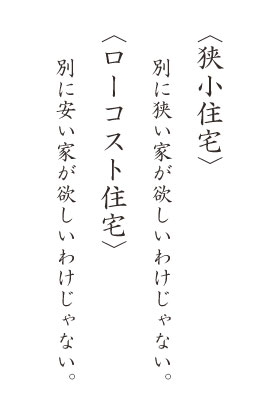 〈狭小住宅〉
別に狭い家が欲しいわけじゃない。
〈ローコスト住宅〉
別に安い家が欲しいわけじゃない。